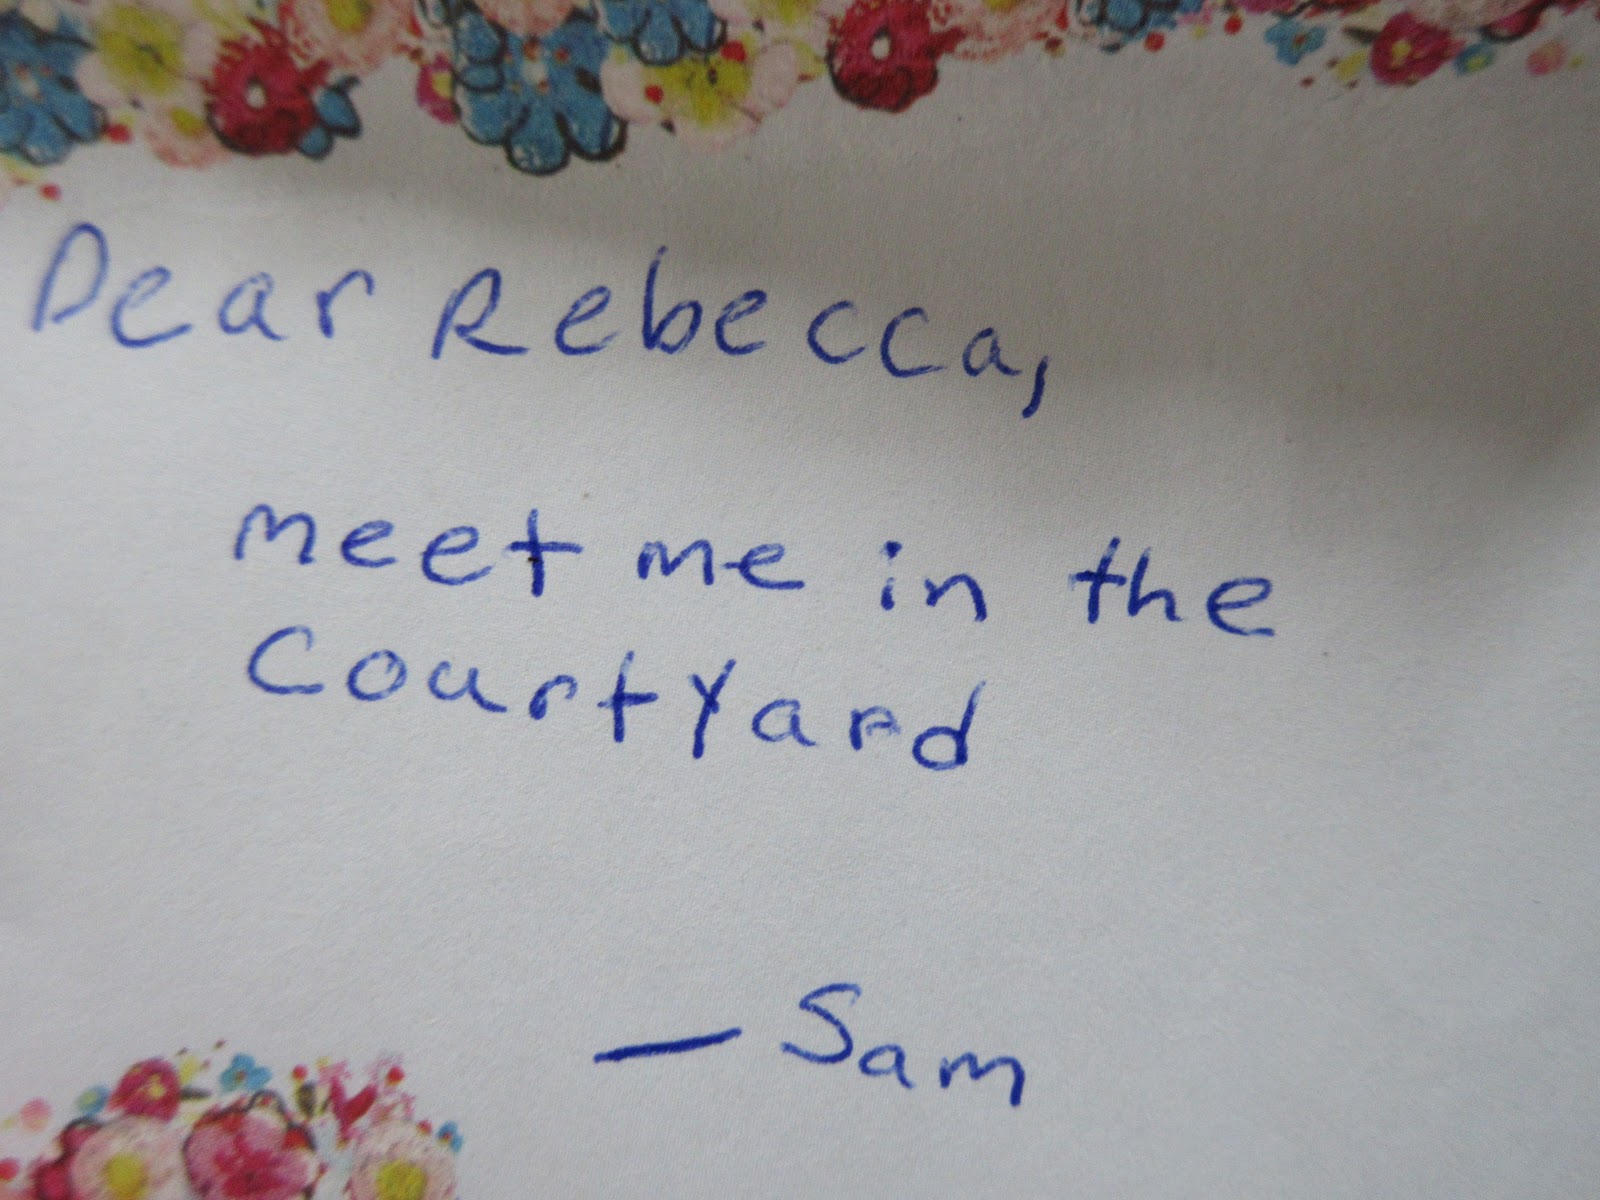 Dear Rebecca,
meet me in the
Courtyard
— Sam